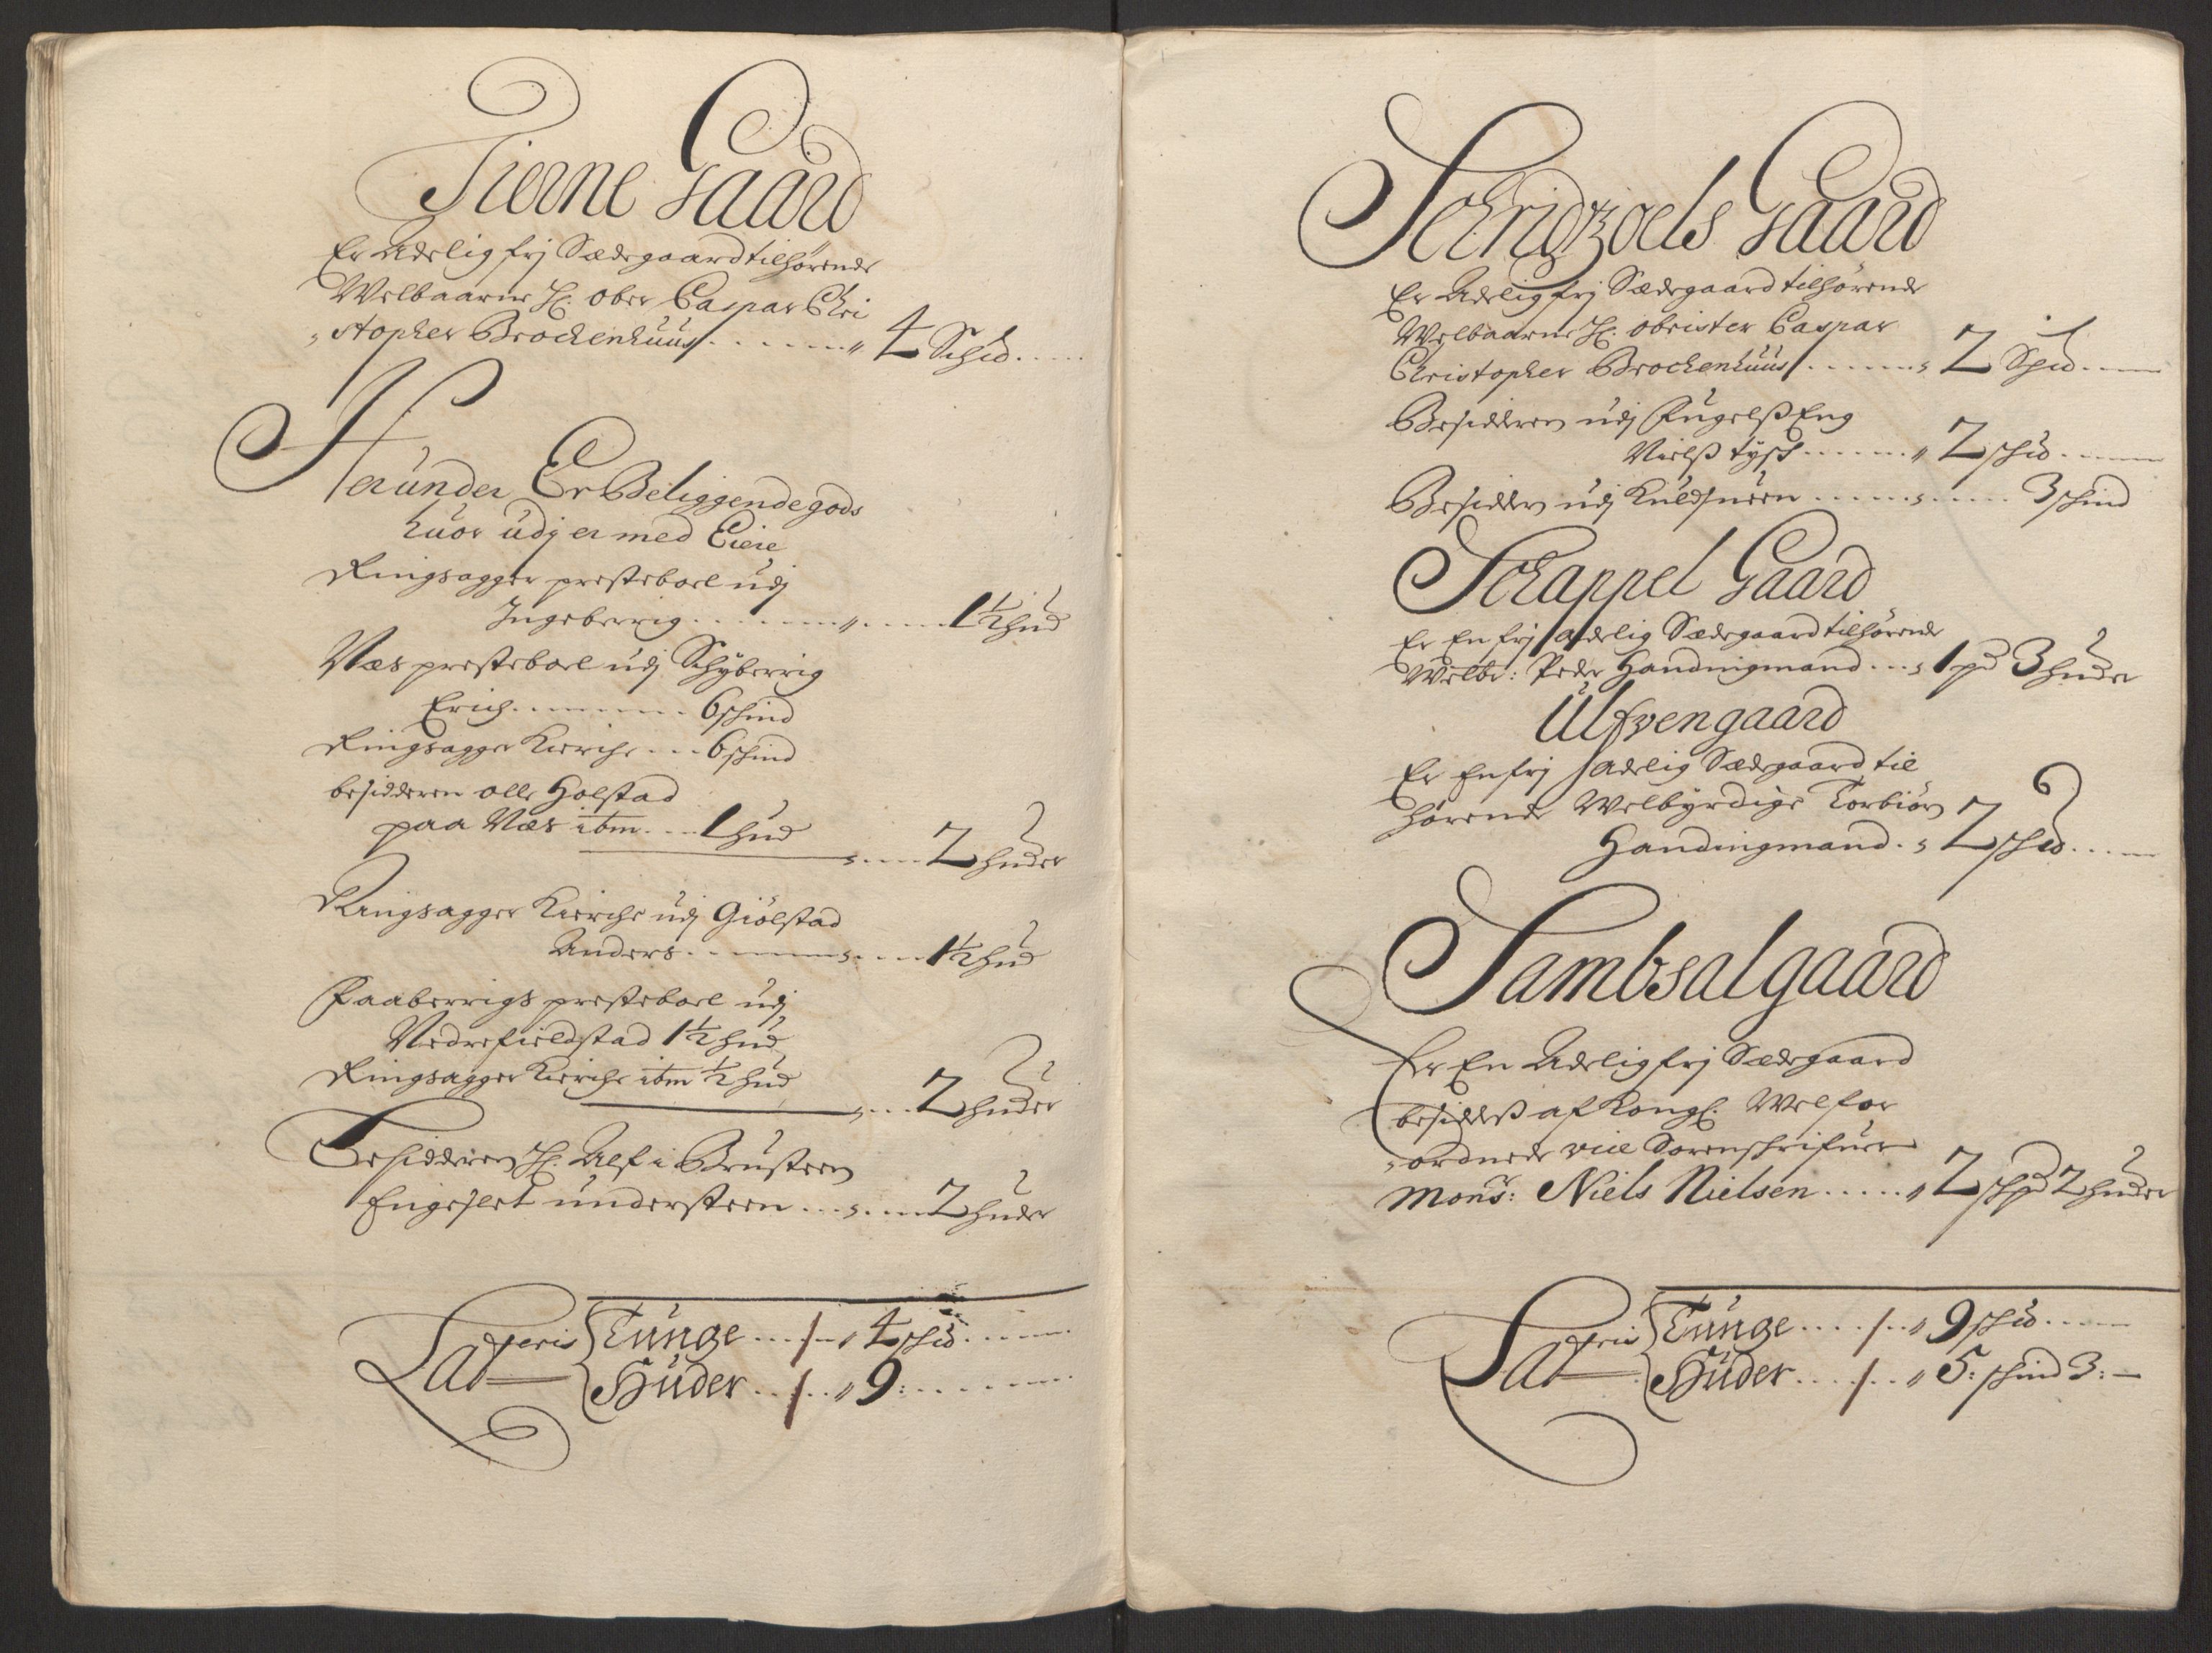 Tierne Gaard
Er Adelig frj Sædegaard tilhørende
Welbaarne H: Ober Caspar Chri
„stopher Brockenhuus ....... „ 4 Schd .....
Herunder Er Beliggende gods
huor udj er med Eiere
Ringsagger prestebool udj
Ingeberrig ....... „ ..... 1½ hud
Næs prestebool udj Schyberrig
Erich ....... 6 schind
Ringsagger Kierche ... 6 schind
besidderen olle Holstad
paa Næs ibm ... 1 hud
„ .... 2 huder
Ringsagger Kierche udj Giølstad
Anders ....... „ .... 1½ hud
Faaberrigs prestebool udj
Nedrefieldstad 1½ hud
Ringsagger Kierche ibm ½ hud
„ ... 2 huder
Besidderen H: Alf i Brusteen
Engeslet understeen ... „ ... 2 huder
Lateris { Tunge .... / .. „ 4 schd .....
Huder .... / .. „ 9: .......
Schridtzoels Gaard
Er Adelig frj Sædegaard tilhørende
Welbaarne H: obrister Caspar
Christopher Brockenhuus ...... „ 2 Spd ....
Besidderen udj Fugelß Eng
Nielß tysk ...... „ 2 schd .....
Besidder udj Kuldsueen ..... „ .... 3 schind
Schappel Gaard
Er En frj adelig Sædegaard tilhørende
Welbr: Peder Handingmand ... „ 1 pd 3 huder
Ulfvengaard
Er En frj adelig Sædegaard til
hørende Welbyrdige Torbiøn
Handingmand . „ 2 schd ....
Sambsalgaard
Er En Adelig frj Sædegaard
besiddeß af Kongl: Welfor
„ordnede vice Sorenschrifuer
Mons: Niels Nielsen ..... „ 2 schpd 2 huder
Lateris { Tunge .... / .. „ 9 schd .....
Huder .... / .. „ 5: schind 3: —